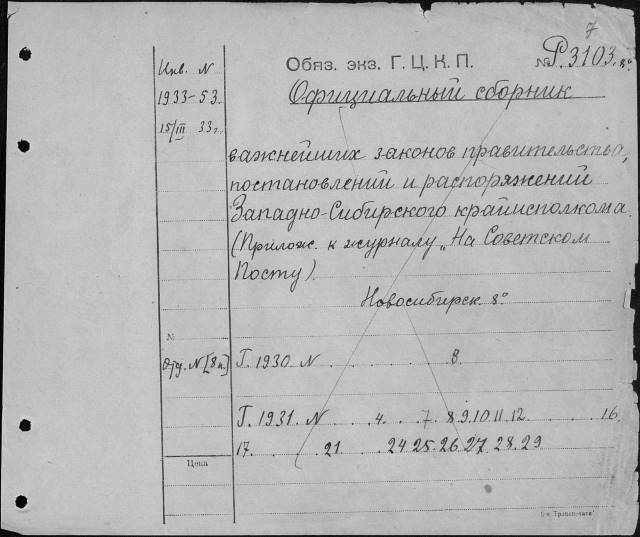 7
Обяз. экз. Г. Ц. К. П. № Р.3103. 8°
Инв. N
1933-53.
15/III 33 г.
Официальный сборник
важнейших законов правительства,
постановлений и распоряжений
Западно-Сибирского крайисполкома
(Прилож. к журналу „На Советском
Посту).
Новосибирск. 8°
№
Отд. N [8 н.]
Г. 1930. N . . . . . . . 8.
Г. 1931. N . . . . 4. . . 7. 8. 9. 10. 11. 12. . . . . . 16.
17. . . . . . 21. . . . 24 25. 26. 27. 28. 29
Цена